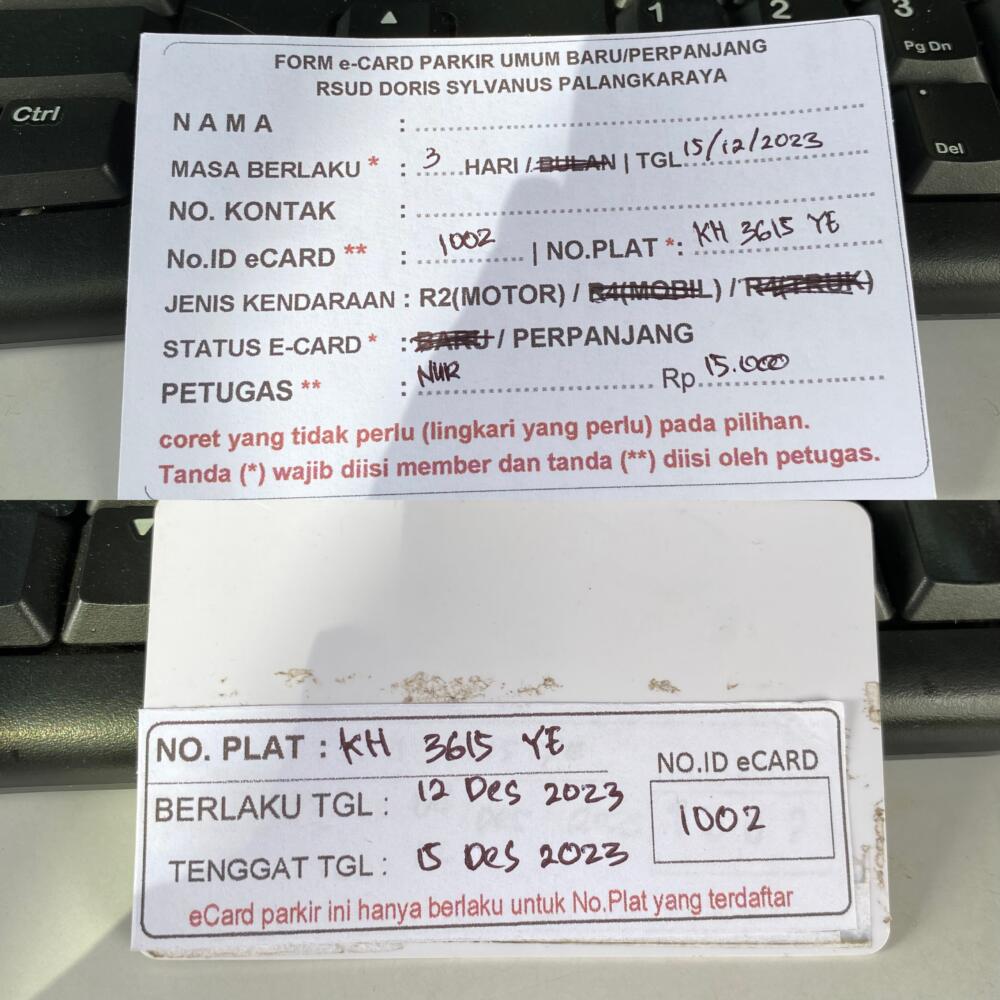 1
2
3
Pg Dn
Ctrl
Del
FORM e-CARD PARKIR UMUM BARU/PERPANJANG
RSUD DORIS SYLVANUS PALANGKARAYA
N A M A :
MASA BERLAKU * : 3 HARI / BULAN | TGL 15/12/2023
NO. KONTAK :
No.ID eCARD ** : 1002 | NO.PLAT *: KH 3615 YE
JENIS KENDARAAN : R2(MOTOR) / R4(MOBIL) / R4(TRUK)
STATUS E-CARD * : BARU / PERPANJANG
PETUGAS ** : NUR Rp 15.000
coret yang tidak perlu (lingkari yang perlu) pada pilihan.
Tanda (*) wajib diisi member dan tanda (**) diisi oleh petugas.
NO. PLAT : KH 3615 YE
NO.ID eCARD
BERLAKU TGL : 12 Des 2023
1002
TENGGAT TGL : 15 Des 2023
eCard parkir ini hanya berlaku untuk No.Plat yang terdaftar